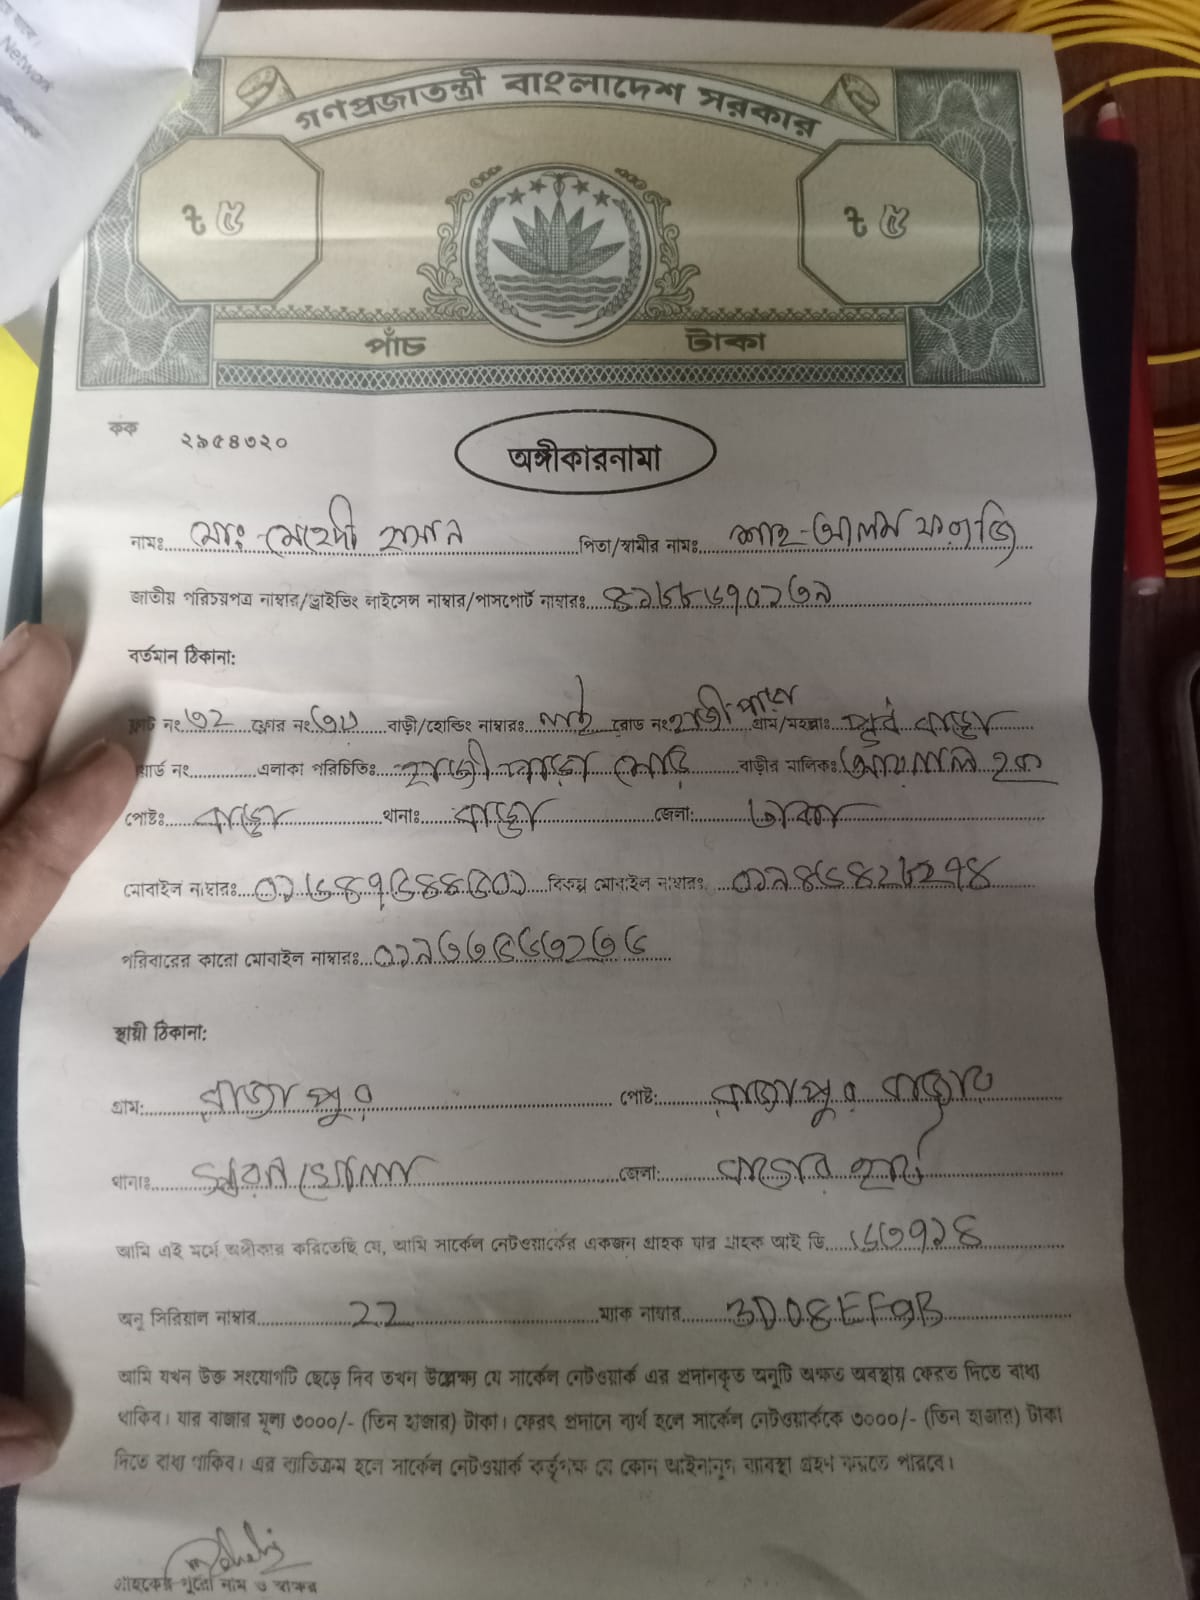 Network
গণপ্রজাতন্ত্রী বাংলাদেশ সরকার
৳ ৫ ৳ ৫
পাঁচ টাকা
কক ২৯৫৪৩২০
অঙ্গীকারনামা
নামঃ মোঃ মেহেদী হাসান পিতা/স্বামীর নামঃ শাহ-আলম ফরাজি
জাতীয় পরিচয়পত্র নাম্বার/ড্রাইভিং লাইসেন্স নাম্বার/পাসপোর্ট নাম্বারঃ
বর্তমান ঠিকানা:
ফ্লাট নং ৩২ ফ্লোর নং বাড়ী/হোল্ডিং নাম্বারঃ নাই রোড নং হাজী পাড়া গ্রাম/মহল্লাঃ বাড্ডা
ওয়ার্ড নং এলাকা পরিচিতিঃ হাজী পাড়া বাড়ীর মালিকঃ হক
পোষ্টঃ বাড্ডা থানাঃ বাড্ডা জেলা: ঢাকা
মোবাইল নাম্বারঃ বিকল্প মোবাইল নাম্বারঃ
পরিবারের কারো মোবাইল নাম্বারঃ
স্থায়ী ঠিকানা:
গ্রাম: রাজাপুর পোষ্ট: রাজাপুর বাজার
থানাঃ জেলা: বাগেরহাট
আমি এই মর্মে অঙ্গীকার করিতেছি যে, আমি সার্কেল নেটওয়ার্কের একজন গ্রাহক যার গ্রাহক আই ডি
অনু সিরিয়াল নাম্বার 22 ম্যাক নাম্বার 3D08EF9B
আমি যখন উক্ত সংযোগটি ছেড়ে দিব তখন উল্লেখ্য যে সার্কেল নেটওয়ার্ক এর প্রদানকৃত অনুটি অক্ষত অবস্থায় ফেরত দিতে বাধ্য
থাকিব। যার বাজার মূল্য ৩০০০/- (তিন হাজার) টাকা। ফেরৎ প্রদানে ব্যর্থ হলে সার্কেল নেটওয়ার্ককে ৩০০০/- (তিন হাজার) টাকা
দিতে বাধ্য থাকিব। এর ব্যতিক্রম হলে সার্কেল নেটওয়ার্ক কর্তৃপক্ষ যে কোন আইনানুগ ব্যাবস্থা গ্রহণ করতে পারবে।
গ্রাহকের পুরো নাম ও স্বাক্ষর